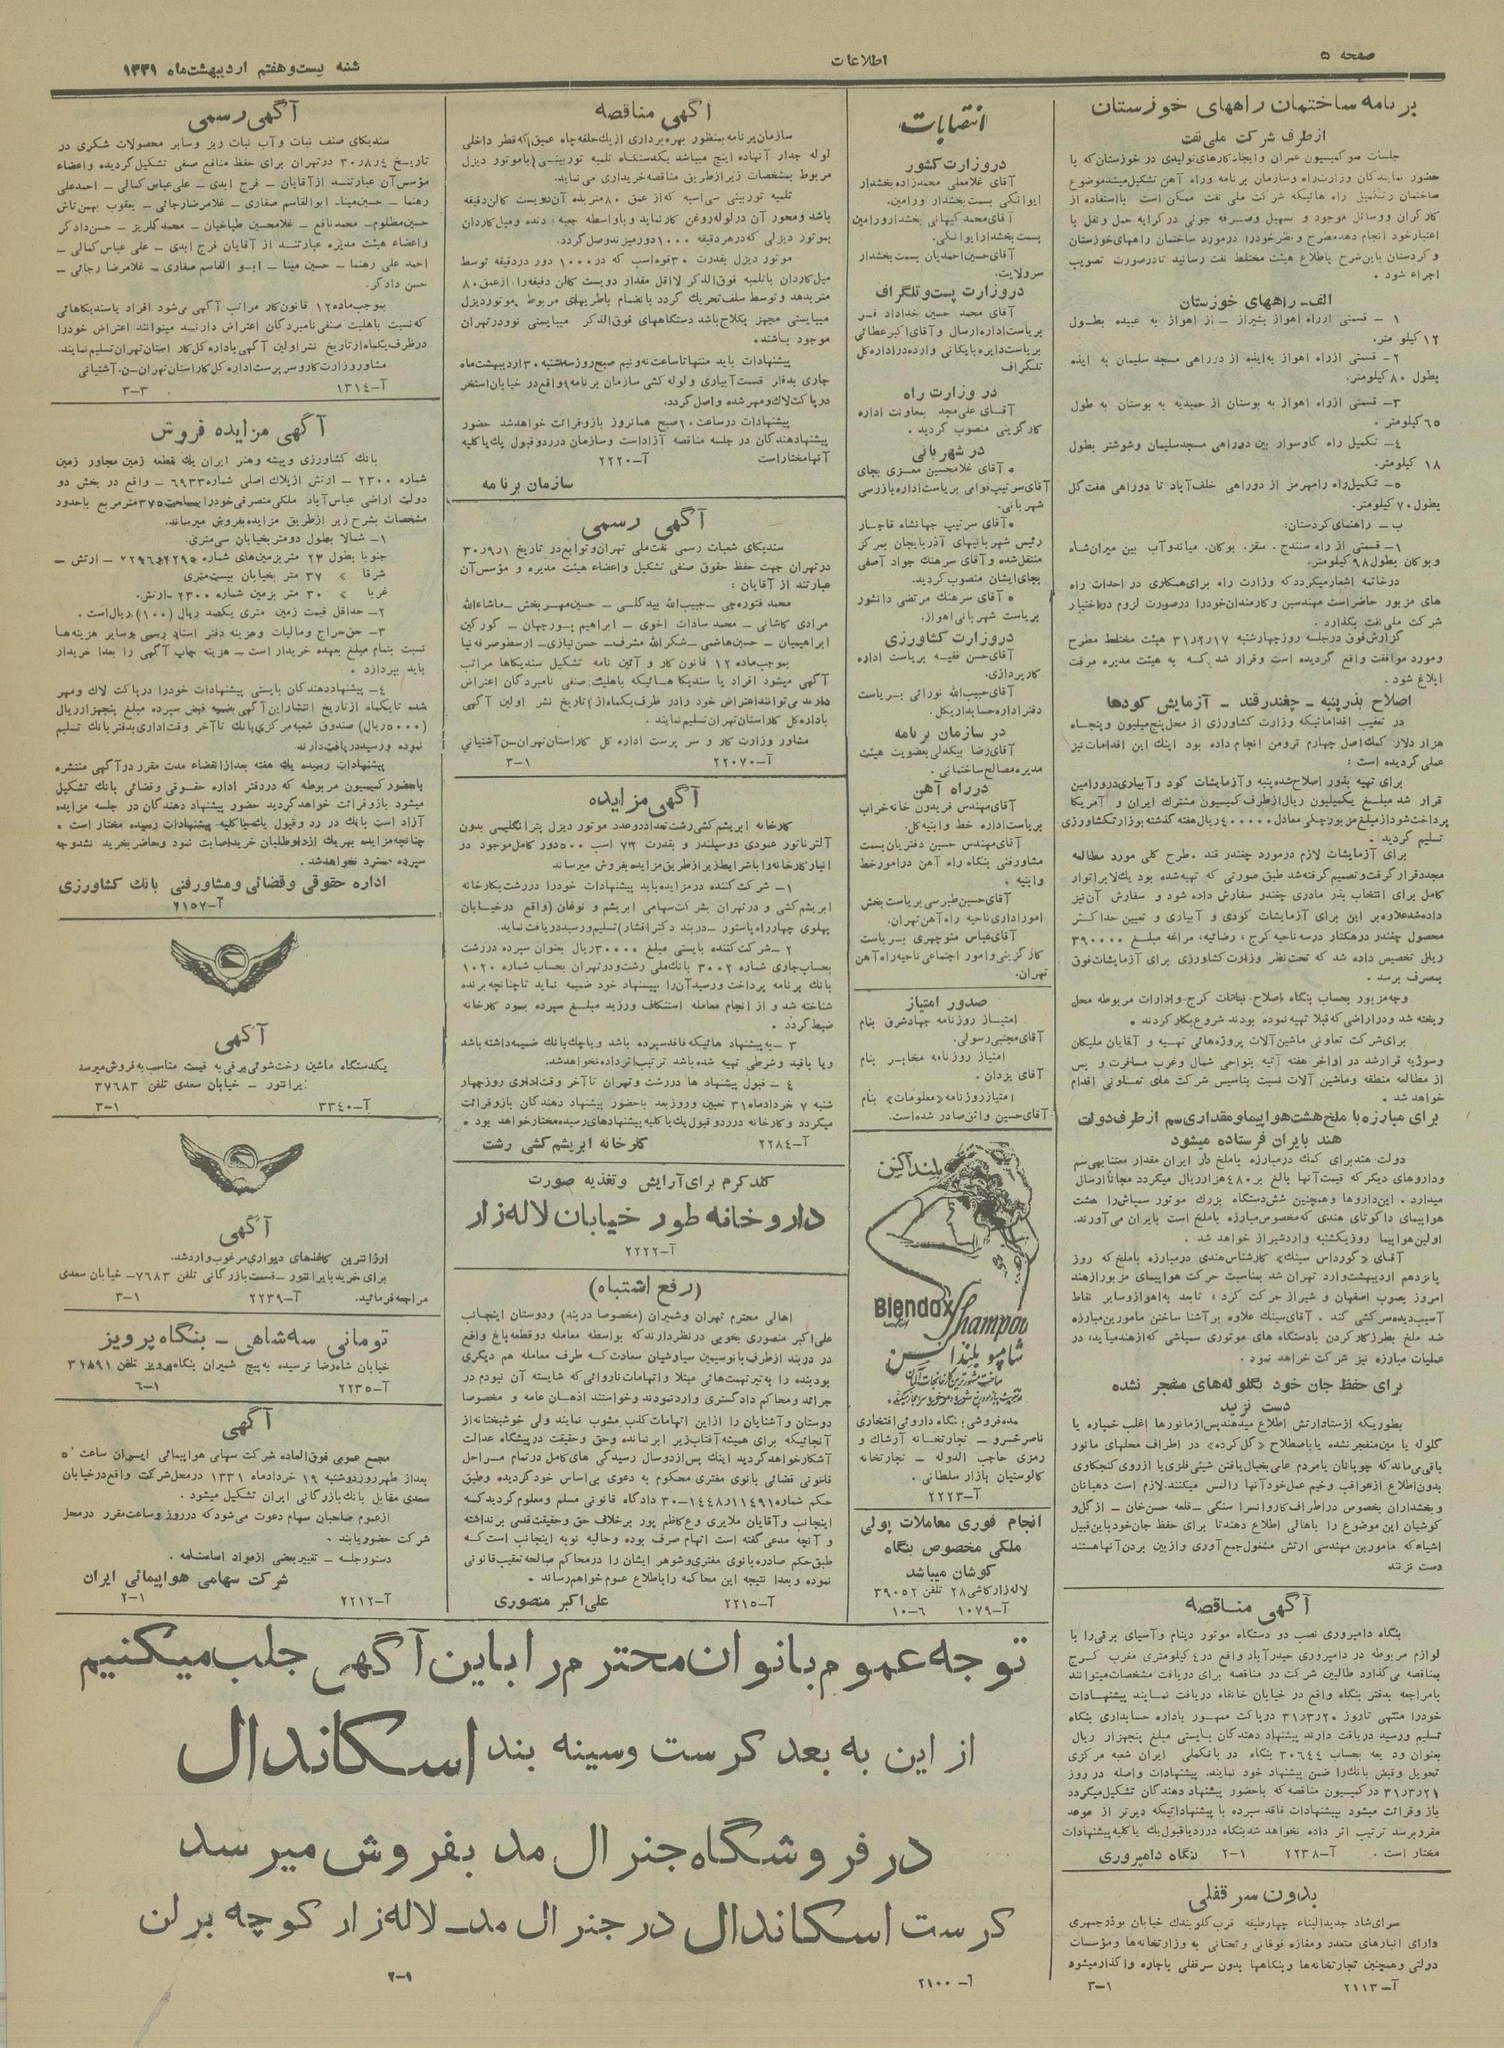 صفحه ۵
اطلاعات
شنبه بیست و هفتم اردیبهشت ماه ۱۳۳۱
برنامه ساختمان راههای خوزستان
ازطرف شرکت ملی نفت
جلسات سوکمیسیون عمران وایجاد کارهای تولیدی در خوزستان که با
حضور نمایندگان وزارت راه وسازمان برنامه وراه آهن تشکیل میشد موضوع
ساختمان وتکمیل راه هائیکه شرکت ملی نفت ممکن است بااستفاده از
کارگران ووسائل موجود و تسهیل وصرفه جوئی در کرایه حمل ونقل با
اعتبار خود انجام دهد مطرح و نظر خودرا درمورد ساختمان راههای خوزستان
وکردستان باین شرح باطلاع هیئت مختلط نفت رسانید تادرصورت تصویب
اجراء شود .
الف- راههای خوزستان
۱ - قسمتی ازراه اهواز بشیراز - از اهواز به عبیده بطول
۱۲ کیلو متر.
۲- قسمتی ازراه اهواز به ایذه از دوراهی مسجد سلیمان به ایذه
بطول ۸۰ کیلومتر.
۳- قسمتی ازراه اهواز به بوستان از حمیدیه به بوستان به طول
۶۵ کیلومتر .
۴- تکمیل راه گاوسوار بین دوراهی مسجدسلیمان وشوشتر بطول
۱۸ کیلومتر.
۵- تکمیل راه رامهرمز از دوراهی خلف آباد تا دوراهی هفت گل
بطول ۷۰ کیلومتر.
ب - راههای کردستان:
۱- قسمتی از راه سنندج . سقز. بوکان. میاندوآب بین میران شاه
وبوکان بطول ۹۸ کیلومتر.
درخاتمه اشعار میگردد که وزارت راه برای همکاری در احداث راه
های مزبور حاضر است مهندسین وکارمندان خودرا درصورت لزوم دراختیار
شرکت ملی نفت بگذارد .
گزارش فوق درجلسه روز چهارشنبه ۳۱/۲/۱۷ هیئت مختلط مطرح
ومورد موافقت واقع گردیده است وقرار شد که به هیئت مدیره موقت
ابلاغ شود .
اصلاح بذر پنبه - چغندر قند - آزمایش کودها
در تعقیب اقداماتیکه وزارت کشاورزی از محل پنج میلیون وپنجاه
هزار دلار کمک اصل چهارم ترومن انجام داده بود اینک این اقدامات نیز
عملی گردیده است :
برای تهیه بذور اصلاح شده پنبه وآزمایشات کود وآبیاری درورامین
قرار شد مبلغ یکمیلیون ریال ازطرف کمیسیون مشترک ایران و آمریکا
پرداخت شود از مبلغ مزبور چکی معادل ۴۰۰۰۰۰ ریال هفته گذشته بوزارت کشاورزی
تسلیم گردید .
برای آزمایشات لازم درمورد چغندر قند . طرح کلی مورد مطالعه
مجدد قرار گرفت وتصمیم گرفته شد طبق صورتی که تهیه شده بود یک لابراتوار
کامل برای انتخاب بذر مادری چغندر سفارش داده شود و سفارش آن نیز
داده شد علاوه بر این برای آزمایشات کودی و آبیاری و تعیین حداکثر
محصول چغندر در هکتار درسه ناحیه کرج ، رضائیه، مراغه مبلغ ۳۹۰۰۰۰
ریال تخصیص داده شد که تحت نظر وزارت کشاورزی برای آزمایشات فوق
بمصرف برسد .
وجه مزبور بحساب بنگاه اصلاح نباتات کرج وادارات مربوطه محل
ریخته شد ودراراضی که قبلا تهیه نموده بودند شروع بکار کردند .
برای شرکت تعاونی ماشین آلات پروژه هائی تهیه و آقایان ملیکان
وسوژیه قرار شد در اواخر هفته آتیه بنواحی شمال وغرب مسافرت و پس
از مطالعه منطقه وماشین آلات نسبت بتاسیس شرکت های تعاونی اقدام
خواهد شد .
برای مبارزه با ملخ هشت هواپیما و مقداری سم از طرف دولت
هند بایران فرستاده میشود
دولت هند برای کمک درمبارزه باملخ در ایران مقدار معتنابهی سم
وداروهای دیگر که قیمت آنها بالغ بر ۴۸۰ هزار ریال میگردد مجاناً ارسال
میدارد . این داروها و همچنین شش دستگاه بزرگ موتور سمپاش را هشت
هواپیمای داکوتای هندی که مخصوص مبارزه باملخ است بایران می آورند.
اولین هواپیما روز یکشنبه وارد شیراز خواهد شد .
آقای «گورداس سینک» کارشناس هندی درمبارزه باملخ که روز
پانزدهم اردیبهشت وارد تهران شد بمناسبت حرکت هواپیمای مزبور از هند
امروز بصوب اصفهان و شیراز حرکت کرد ، تا بعد به اهواز وسایر نقاط
آسیب دیده سرکشی کند . آقای سینک علاوه بر آشنا ساختن مامورین مبارزه
ضد ملخ بطرز کار کردن بادستگاه های موتوری سمپاشی که از هند میآید، در
عملیات مبارزه نیز شرکت خواهد نمود .
برای حفظ جان خود بگلوله های منفجر نشده
دست نزنید
بطوریکه ازستاد ارتش اطلاع میدهند پس از مانورها اغلب خمپاره یا
گلوله یا مین منفجر نشده یا باصطلاح «گل کرده» در اطراف محلهای مانور
باقی می ماند که چوپانان یا مردم عامی بخیال یافتن شیئی فلزی یا ازروی کنجکاوی
بدون اطلاع ازعواقب وخیم عمل خود آنها رالمس میکنند. لازم است دهبانان
وبخشداران بخصوص دراطراف کاروانسرا سنگی - قلعه حسن خان - ازگل و
کوشیان این موضوع را باهالی اطلاع دهند تا برای حفظ جان خود باین قبیل
اشیاء که مامورین مهندسی ارتش مشغول جمع آوری و از بین بردن آنها هستند
دست نزنند
آگهی مناقصه
بنگاه دامپروری نصب دو دستگاه موتور دینام وآسیای برقی را با
لوازم مربوطه در دامپروری حیدرآباد واقع در ۴ کیلومتری مغرب کرج
بمناقصه می گذارد طالبین شرکت در مناقصه برای دریافت مشخصات میتوانند
بامراجعه بدفتر بنگاه واقع در خیابان خانقاه دریافت نمایند پیشنهادات
خودرا منتهی تاروز ۳۱/۳/۲۰ درپاکت ممهور باداره حسابداری بنگاه
تسلیم ورسید دریافت دارند پیشنهاد دهندگان بایستی مبلغ پنجهزار ریال
بعنوان ود یعه بحساب ۳۰۶۴۴ بنگاه در بانک ملی ایران شعبه مرکزی
تحویل وقبض بانک را ضمن پیشنهاد خود نمایند. پیشنهادات واصله در روز
۳۱/۳/۲۱ در کمیسیون مناقصه که باحضور پیشنهاد دهندگان تشکیل میگردد
باز وقرائت میشود بپیشنهادات فاقد سپرده یا پیشنهاداتیکه دیرتر از موعد
مقرر برسد ترتیب اثر داده نخواهد شد بنگاه دررد یا قبول یک یا کلیه پیشنهادات
مختار است .
آ-۲۲۳۸ ۲-۱ بنگاه دامپروری
بدون سرقفلی
سرای شاد جدیدالبناء چهارطبقه قرب گلوبندک خیابان بوذرجمهری
دارای انبارهای متعدد ومغازه فوقانی وتحتانی به وزارتخانه ها ومؤسسات
دولتی وهمچنین تجارتخانه ها وبنگاهها بدون سرقفلی باجاره واگذار میشود
آ-۲۱۱۳ ۳-۱
انتصابات
در وزارت کشور
آقای غلامعلی محمدزاده بخشدار
ایوانکی بسمت بخشدار ورامین.
آقای محمد کیهانی بخشدار ورامین
بسمت بخشدار ایوانکی.
آقای حسین احمدیان بسمت بخشدار
سرولایت.
در وزارت پست و تلگراف
آقای محمد حسین خداداد فر
بریاست اداره ارسال و آقای اکبر عطائی
بریاست دایره بایگانی وارده در اداره کل
تلگراف
در وزارت راه
آقای علی مجد بمعاونت اداره
کارگزینی منصوب گردید .
در شهربانی
* آقای غلامحسین معزی بجای
آقای سرتیپ قوامی بریاست اداره بازرسی
شهربانی.
* آقای سرتیپ جهانشاه قاجار
رئیس شهربانیهای آذربایجان بمرکز
منتقل شده و آقای سرهنگ جواد آصفی
بجای ایشان منصوب گردید.
* آقای سرهنگ مرتضی دانشور
بریاست شهربانی اهواز.
در وزارت کشاورزی
آقای حسن فقیه بریاست اداره
کارپردازی.
آقای حبیب الله نورائی بریاست
دفتر اداره حسابداری کل.
در سازمان برنامه
آقای رضا بیگدلی بعضویت هیئت
مدیره مصالح ساختمانی.
در راه آهن
آقای مهندس فریدون خانه خراب
بریاست اداره خط وابنیه کل.
آقای مهندس حسین دفتریان بسمت
مشاور فنی بنگاه راه آهن درامور خط
وابنیه .
آقای حسین طبرسی بریاست بخش
امور اداری ناحیه راه آهن تهران.
آقای عباس منوچهری بریاست
کارگزینی وامور اجتماعی ناحیه راه آهن
تهران.
صدور امتیاز
امتیاز روزنامه جهاد شرق بنام
آقای مجتبی رسولی.
امتیاز روزنامه مخابر بنام
آقای یزدان .
امتیاز روزنامه «معلومات» بنام
آقای حسین واثق صادر شده است.
بلنداکس
Blendax
Shampoo
شامپو بلنداکس
ساخت مشهورترین کارخانجات آلمان
عمده فروشی بنگاه داروئی افتخاری
ناصر خسرو - تجارتخانه آرشاک و
رمزی حاجب الدوله - تجارتخانه
کالوستیان بازار سلطانی .
آ-۲۲۲۳
انجام فوری معاملات پولی
ملکی مخصوص بنگاه
کوشان میباشد
لاله زار کاشی ۲۸ تلفن ۳۹۰۵۲
آ-۱۰۷۹ ۱۰-۶
آگهی مناقصه
سازمان برنامه بمنظور بهره برداری از یک حلقه چاه عمیق که قطر داخلی
لوله جدار آنهاده اینچ میباشد یکدستگاه تلمبه توربینی (باموتور دیزل
مربوط بمشخصات زیر ازطریق مناقصه خریداری می نماید.
تلمبه توربینی می باید که از عمق ۸۰ متر بده آن دویست گالن دقیقه
باشد ومحور آن درلوله روغن کار نماید و باواسطه جعبه دنده ومیل کاردان
بموتور دیزلی که در هر دقیقه ۱۰۰۰ دور میزند وصل گردد.
موتور دیزل بقدرت ۳۰ قوه اسب که در ۱۰۰۰ دور دردقیقه توسط
میل کاردان باتلمبه فوق الذکر لااقل مقدار دویست گالن دقیقه را از عمق ۸۰
متر بدهد و توسط سلف تحریک گردد باانضمام باطریهای مربوط بموتور دیزل
میبایستی مجهز بکلاچ باشد دستگاههای فوق الذکر میبایستی نو ودر تهران
موجود باشند.
پیشنهادات باید منتها تاساعت نه ونیم صبح روز سه شنبه ۳۰ اردیبهشت ماه
جاری بدفتر قسمت آبیاری و لوله کشی سازمان برنامه واقع در خیابان استخر
درپاکت لاک ومهر شده واصل گردد.
پیشنهادات درساعت ۱۰ صبح همانروز باز وقرائت خواهد شد حضور
پیشنهاد دهندگان در جلسه مناقصه آزاد است وسازمان دررد وقبول یک یا کلیه
آنها مختار است آ-۲۲۲۰
سازمان برنامه
آگهی رسمی
سندیکای شعبات رسمی نفت ملی تهران و توابع در تاریخ ۳۰/۹/۱
درتهران جهت حفظ حقوق صنفی تشکیل واعضاء هیئت مدیره و مؤسس آن
عبارتند از آقایان :
محمد فتوره چی - حبیب الله بیدگلی - حسین مهربخش - ماشاءالله
مرادی کاشانی - محمد سادات اخوی - ابراهیم پورجهان - گورگین
ابراهیمیان - حسین هاشمی - شکرالله مشرف - حسن نیازی - ارسطو صرفه نیا
بموجب ماده ۱۲ قانون کار و آئین نامه تشکیل سندیکاها مراتب
آگهی میشود افراد یا سندیکا هائیکه باهلیت صنفی نامبردگان اعتراض
دارند می توانند اعتراض خود رادر ظرف یکماه از تاریخ نشر اولین آگهی
باداره کل کار استان تهران تسلیم نمایند .
مشاور وزارت کار و سر پرست اداره کل کار استان تهران - ن آشتیانی
آ-۲۲۰۷۰ ۳-۱
آگهی مزایده
کارخانه ابریشم کشی رشت تعداد دو عدد موتور دیزل پتر انگلیسی بدون
آلترناتور عمودی دوسیلندر و بقدرت ۷۲ اسب ۵۰۰ دور کامل موجود در
انبار کارخانه را باشرایط زیر ازطریق مزایده بفروش میرساند
۱- شرکت کننده درمزایده باید پیشنهادات خودرا دررشت بکارخانه
ابریشم کشی و درتهران بشرکت سهامی ابریشم و نوغان (واقع درخیابان
پهلوی چهار راه پاستور - دربند دکتر افشار) تسلیم ورسید دریافت نماید.
۲- شرکت کننده بایستی مبلغ ۳۰۰۰۰ ریال بعنوان سپرده دررشت
بحساب جاری شماره ۳۰۰۲ بانک ملی رشت ودر تهران بحساب شماره ۱۰۲۰
بانک برنامه پرداخت ورسید آن را بپیشنهاد خود ضمیمه نماید تاچنانچه برنده
شناخته شد و از انجام معامله استنکاف ورزید مبلغ سپرده بسود کارخانه
ضبط گردد .
۳- به پیشنهاد هائیکه فاقد سپرده باشد ویا چک بانک ضمیمه داشته باشد
ویا باقید وشرطی تهیه شده باشد ترتیب اثر داده نخواهد شد.
۴- قبول پیشنهاد ها دررشت وتهران تا آخر وقت اداری روز چهار
شنبه ۷ خرداد ماه ۳۱ تعیین وروز بعد باحضور پیشنهاد دهندگان باز وقرائت
میگردد وکارخانه دررد وقبول یک یا کلیه پیشنهادهای رسیده مختار خواهد بود .
آ-۲۲۸۴ کارخانه ابریشم کشی رشت
کلد کرم برای آرایش وتغذیه صورت
داروخانه طور خیابان لاله زار
آ-۲۲۲۲
(رفع اشتباه)
اهالی محترم تهران وشمیران (مخصوصا دربند) ودوستان اینجانب
علی اکبر منصوری بخوبی در نظر دارند که بواسطه معامله دو قطعه باغ واقع
در دربند ازطرف بانو سیمین سیاوشیان سعادت که طرف معامله هم دیگری
بود بنده را به تیر تهمت هائی مبتلا واتهامات ناروائی که شایسته آن نبودم در
جرائد ومحاکم دادگستری وارد نمودند وخواستند اذهان عامه و مخصوصا
دوستان و آشنایان را ازاین اتهامات کذب مشوب نمایند ولی خوشبختانه از
آنجائیکه برای همیشه آفتاب زیر ابر نمانده وحق وحقیقت درپیشگاه عدالت
آشکار خواهد گردید اینک پس ازدوسال رسیدگی های کامل درتمام مراحل
قانونی قضائی بانوی مفتری محکوم به دعوی بی اساس خود گردیده وطبق
حکم شماره ۱۱۴۹۱/۱۴۴۸-۳۰ دادگاه قانونی مسلم ومعلوم گردید که
اینجانب وآقایان ملایری وع کاظم پور برخلاف حق وحقیقت قدمی برنداشته
و آنچه مدعی گفته است اتهام صرف بوده وحالیه نوبه اینجانب است که
طبق حکم صادره بانوی مفتری وشوهر ایشان را درمحاکم صالحه تعقیب قانونی
نموده وبعدا نتیجه این محاکمه را باطلاع عموم خواهم رساند .
آ-۲۲۱۵ علی اکبر منصوری
آگهی رسمی
سندیکای صنف نبات وآب نبات ریز وسایر محصولات شکری در
تاریخ ۳۰/۸/۴ درتهران برای حفظ منافع صنفی تشکیل گردیده واعضاء
مؤسس آن عبارتند از آقایان - فرج ابدی - علی عباس کمالی - احمدعلی
رهنما - حسین مینا - ابوالقاسم صفاری - غلامرضا رجائی - یعقوب بهمن تاش
حسین مظلوم - محمد نافع - غلامحسین طباخیان - محمد گلریز - حسن دادگر
واعضاء هیئت مدیره عبارتند از آقایان فرج ابدی - علی عباس کمالی -
احمد علی رهنما - حسین مینا - ابو القاسم صفاری - غلامرضا رجائی -
حسن دادگر.
بموجب ماده ۱۲ قانون کار مراتب آگهی می شود افراد یا سندیکاهائی
که نسبت باهلیت صنفی نامبردگان اعتراض دارند میتوانند اعتراض خودرا
در ظرف یکماه از تاریخ نشر اولین آگهی باداره کل کار استان تهران تسلیم نمایند.
مشاور وزارت کار و سر پرست اداره کل کار استان تهران - ن - آشتیانی
آ-۱۳۱۴ ۳-۳
آگهی مزایده فروش
بانک کشاورزی وپیشه وهنر ایران یک قطعه زمین مجاور زمین
شماره ۲۳۰۰ - ارتش ازپلاک اصلی شماره ۶۹۳۳ - واقع در بخش دو
دولت اراضی عباس آباد ملکی متصرفی خودرا بمساحت ۳۷۵ متر مربع باحدود
مشخصات بشرح زیر ازطریق مزایده بفروش میرساند.
۱- شمالا بطول دومتر بخیابان سی متری.
جنوبا بطول ۲۳ متر بزمین های شماره ۲۲۹۵و۲۲۹۶ - ارتش -
شرقا » ۳۷ متر بخیابان بیست متری
غربا » ۳۰ متر بزمین شماره ۲۳۰۰ - ارتش.
۲- حداقل قیمت زمین متری یکصد ریال (۱۰۰) ریال است .
۳- حق حراج ومالیات وهزینه دفتر اسناد رسمی وسایر هزینه ها
نسبت بتمام مبلغ بعهده خریدار است - هزینه چاپ آگهی را بعدا خریدار
باید بپردازد .
۴- پیشنهاد دهندگان بایستی پیشنهادات خودرا درپاکت لاک ومهر
شده تا یکماه از تاریخ انتشار این آگهی بضمیمه قبض سپرده مبلغ پنجهزار ریال
(۵۰۰۰ ریال) صندوق شعبه مرکزی بانک تا آخر وقت اداری بدفتر بانک تسلیم
نموده ورسید دریافت دارند.
پیشنهادات رسیده یک هفته بعد از انقضاء مدت مقرر در آگهی منتشره
باحضور کمیسیون مربوطه که دردفتر اداره حقوقی وقضائی بانک تشکیل
میشود باز وقرائت خواهد گردید حضور پیشنهاد دهندگان در جلسه مزایده
آزاد است بانک در رد وقبول یک یا کلیه پیشنهادات رسیده مختار است .
چنانچه مزایده بهر یک از داوطلبان خرید اصابت نمود وحاضر بخرید نشد وجه
سپرده مسترد نخواهد شد.
اداره حقوقی وقضائی ومشاور فنی بانک کشاورزی
آ-۲۱۵۷
آگهی
یکدستگاه ماشین رخت شوئی برقی به قیمت مناسب به فروش میرسد
پرانتور - خیابان سعدی تلفن ۳۷۶۸۳
آ-۳۳۴۰ ۳-۱
آگهی
ارزانترین کاغذهای دیواری مرغوب وارد شد.
برای خرید باپرانتور - قسمت بازرگانی تلفن ۷۶۸۳ - خیابان سعدی
مراجعه فرمائید. آ-۲۲۳۹ ۳-۱
تومانی سه شاهی - بنگاه پرویز
خیابان شاه رضا نرسیده به پیچ شمیران بنگاه پرویز تلفن ۳۱۸۹۱
آ-۲۲۳۵ ۶-۱
آگهی
مجمع عمومی فوق العاده شرکت سهامی هواپیمائی ایران ساعت ۵
بعد از ظهر روز دوشنبه ۱۹ خرداد ماه ۱۳۳۱ در محل شرکت واقع در خیابان
سعدی مقابل بانک بازرگانی ایران تشکیل میشود .
از عموم صاحبان سهام دعوت می شود که درروز وساعت مقرر در محل
شرکت حضور یابند .
دستور جلسه - تغییر بعضی از مواد اساسنامه .
شرکت سهامی هواپیمائی ایران
آ-۲۲۱۲ ۲-۱
توجه عموم بانوان محترم را باین آگهی جلب میکنیم
از این به بعد کرست وسینه بند اسکاندال
در فروشگاه جنرال مد بفروش میرسد
کرست اسکاندال در جنرال مد - لاله زار کوچه برلن
آ-۲۱۰۰ ۲-۱